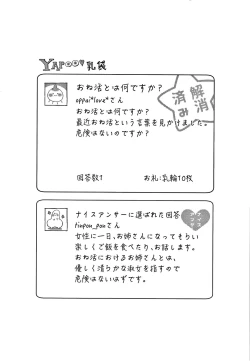 YAPOO!乳袋
おね活とは何ですか?
oppai*love*さん
おね活とは何ですか?
最近おね活という言葉を見かけました。
危険はないのですか?
解消済み
回答数1
お礼:乳輪10枚
ナイスアンサーに選ばれた回答
tinpou_pouさん
女性に一日、お姉さんになってもらい
楽しくご飯を食べたり、お話します。
おね活におけるお姉さんとは、
優しく清らかな淑女を指すので
危険はないはずです。